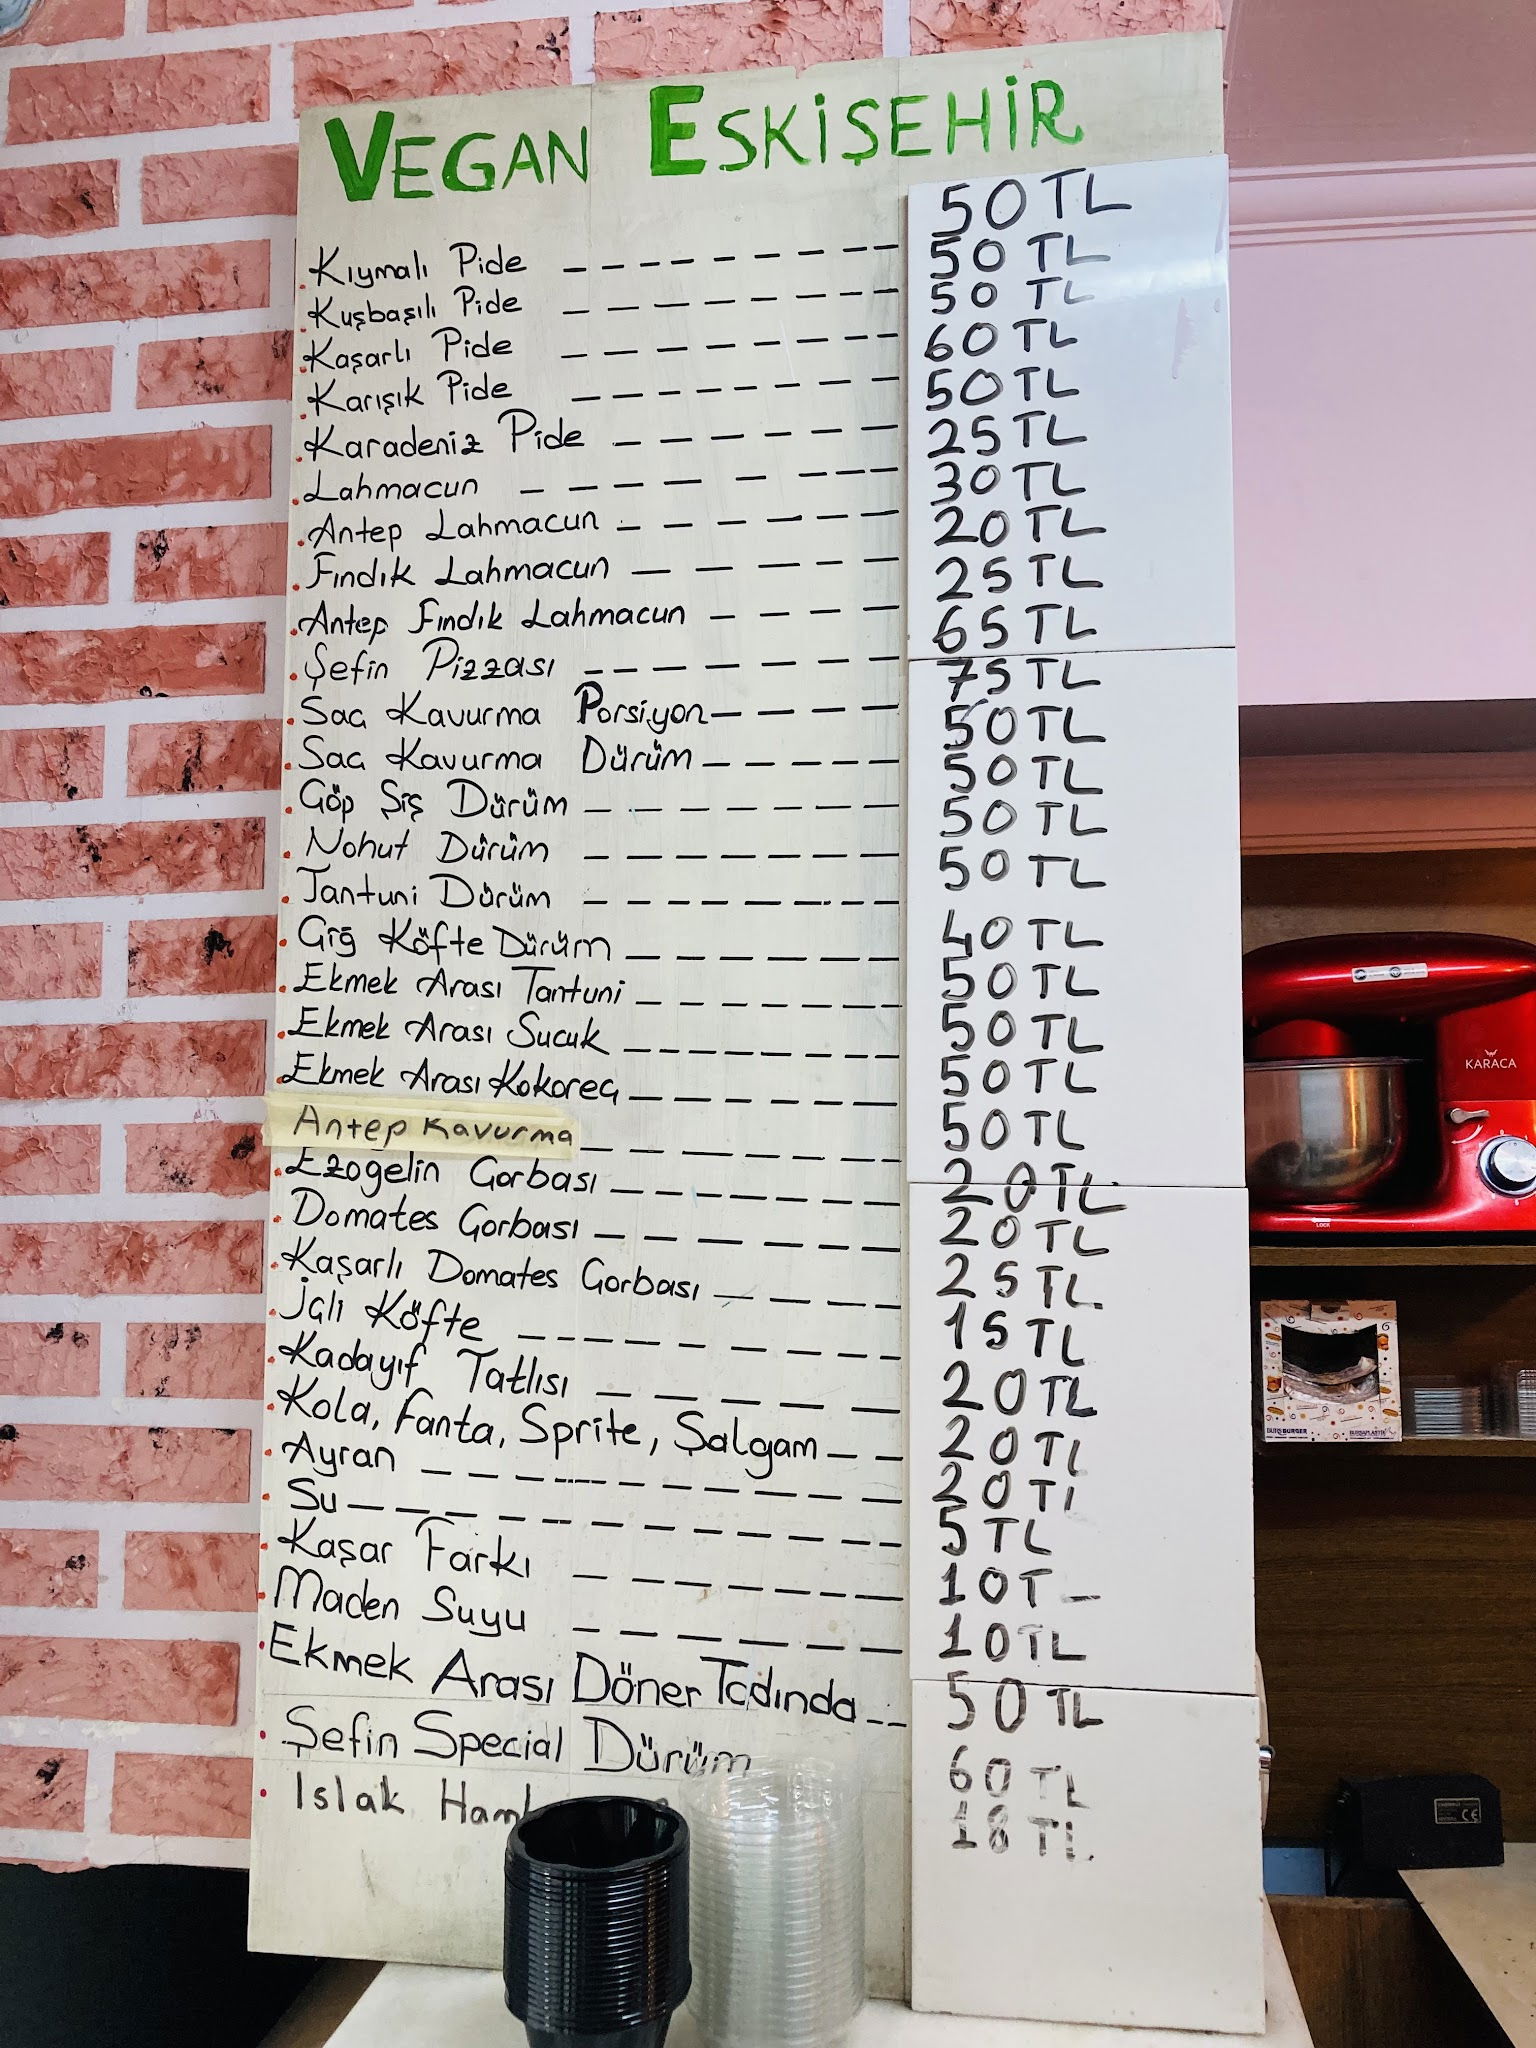 VEGAN ESKİŞEHİR
Kıymalı Pide 50 TL
Kuşbaşılı Pide 50 TL
Kaşarlı Pide 50 TL
Karışık Pide 60 TL
Karadeniz Pide 50 TL
Lahmacun 25 TL
Antep Lahmacun 30 TL
Fındık Lahmacun 20 TL
Antep Fındık Lahmacun 25 TL
Şefin Pizzası 65 TL
Saç Kavurma Porsiyon 75 TL
Saç Kavurma Dürüm 50 TL
Çöp Şiş Dürüm 50 TL
Nohut Dürüm 50 TL
Tantuni Dürüm 50 TL
Çiğ Köfte Dürüm 40 TL
Ekmek Arası Tantuni 50 TL
Ekmek Arası Sucuk 50 TL
Ekmek Arası Kokoreç 50 TL
Antep Kavurma 50 TL
Ezogelin Çorbası 20 TL
Domates Çorbası 20 TL
Kaşarlı Domates Çorbası 25 TL
İçli Köfte 15 TL
Kadayıf Tatlısı 20 TL
Kola, Fanta, Sprite, Şalgam 20 TL
Ayran 20 TL
Su 5 TL
Kaşar Farkı 10 T
Maden Suyu 10 TL
Ekmek Arası Döner Tadında 50 TL
Şefin Special Dürüm 60 TL
Islak 18 TL
KARACA
LOCK
BURGER